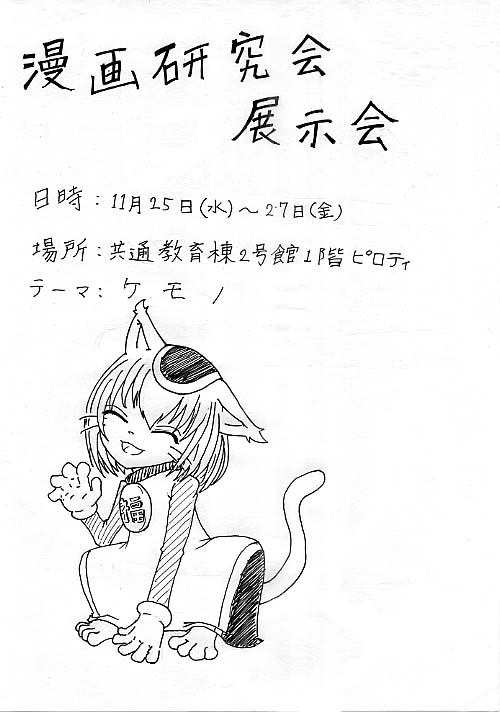 漫画研究会
展示会
日時：11月25日(水)～27日(金)
場所：共通教育棟2号館1階ピロティ
テーマ：ケモノ
福